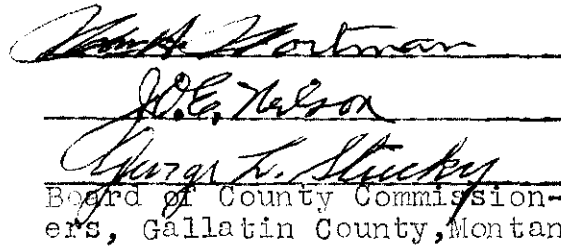 Wm. A. Wortman
J.O.E. Nelson
George L. Stucky
Board of County Commission-
ers, Gallatin County,Montan